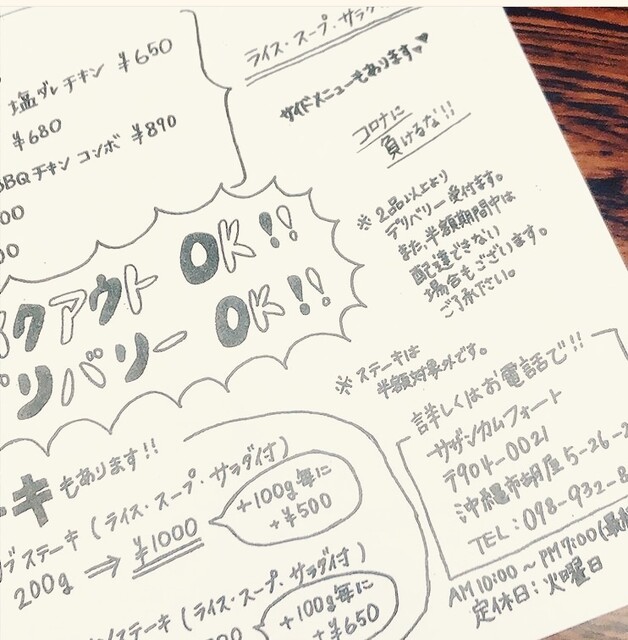 ライス・スープ・サラダ
塩ダレチキン ¥650
サイドメニューもあります
¥680
コロナに
負けるな!!
BBQチキン コンボ ¥890
※ 2品以上より
デリバリー受付ます。
また、半額期間中は
配達できない
場合もございます。
ご了承下さい。
クアウト OK!!
リバリー OK!!
※ ステーキは
半額対象外です。
ーキもあります!!
ブステーキ (ライス・スープ・サラダ付)
200g ⇒ ¥1000
+100g毎に
+¥500
ステーキ (ライス・スープ・サラダ付)
+100g毎に
+¥650
詳しくはお電話で!!
サザンカムフォート
〒904-0021
沖縄市胡屋5-26-2
TEL: 098-932-8
AM10:00～PM7:00(最終
定休日:火曜日